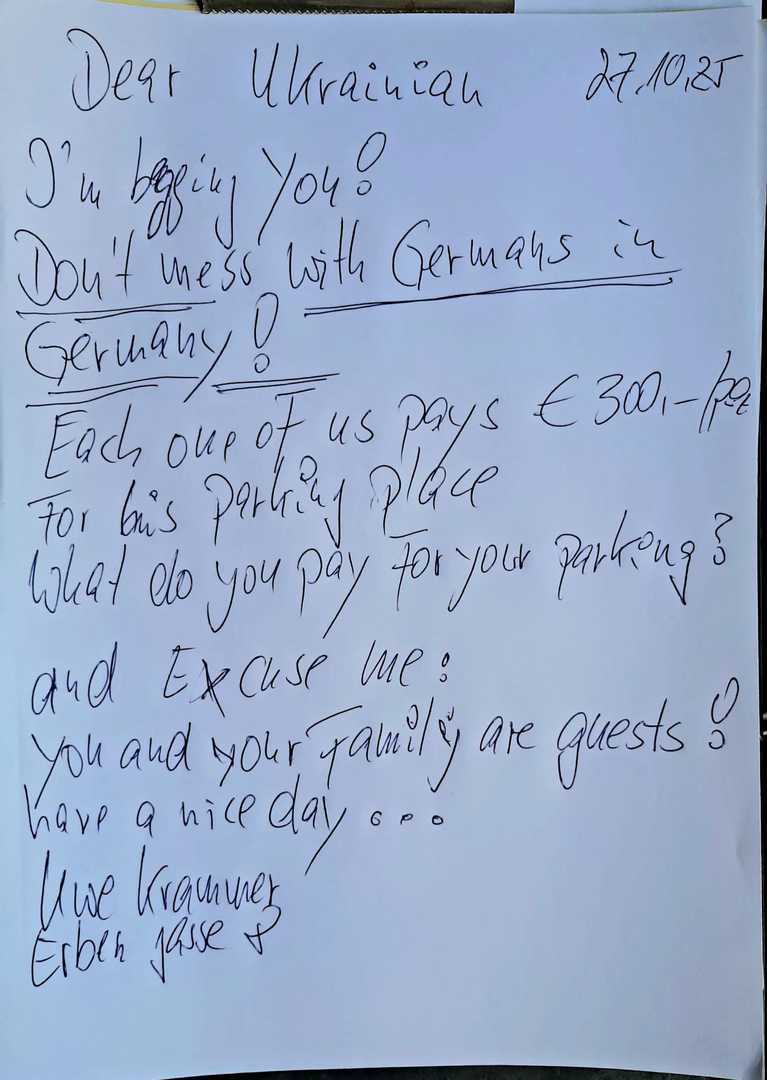 Dear Ukrainian 27.10.25
I'm begging you!
Don't mess with Germans in
Germany!
Each one of us pays € 300,-/
For his parking place
What do you pay for your parking?
and Excuse me:
you and your Family are guests!
have a nice day...
Uwe Krammer
Erbengasse 8